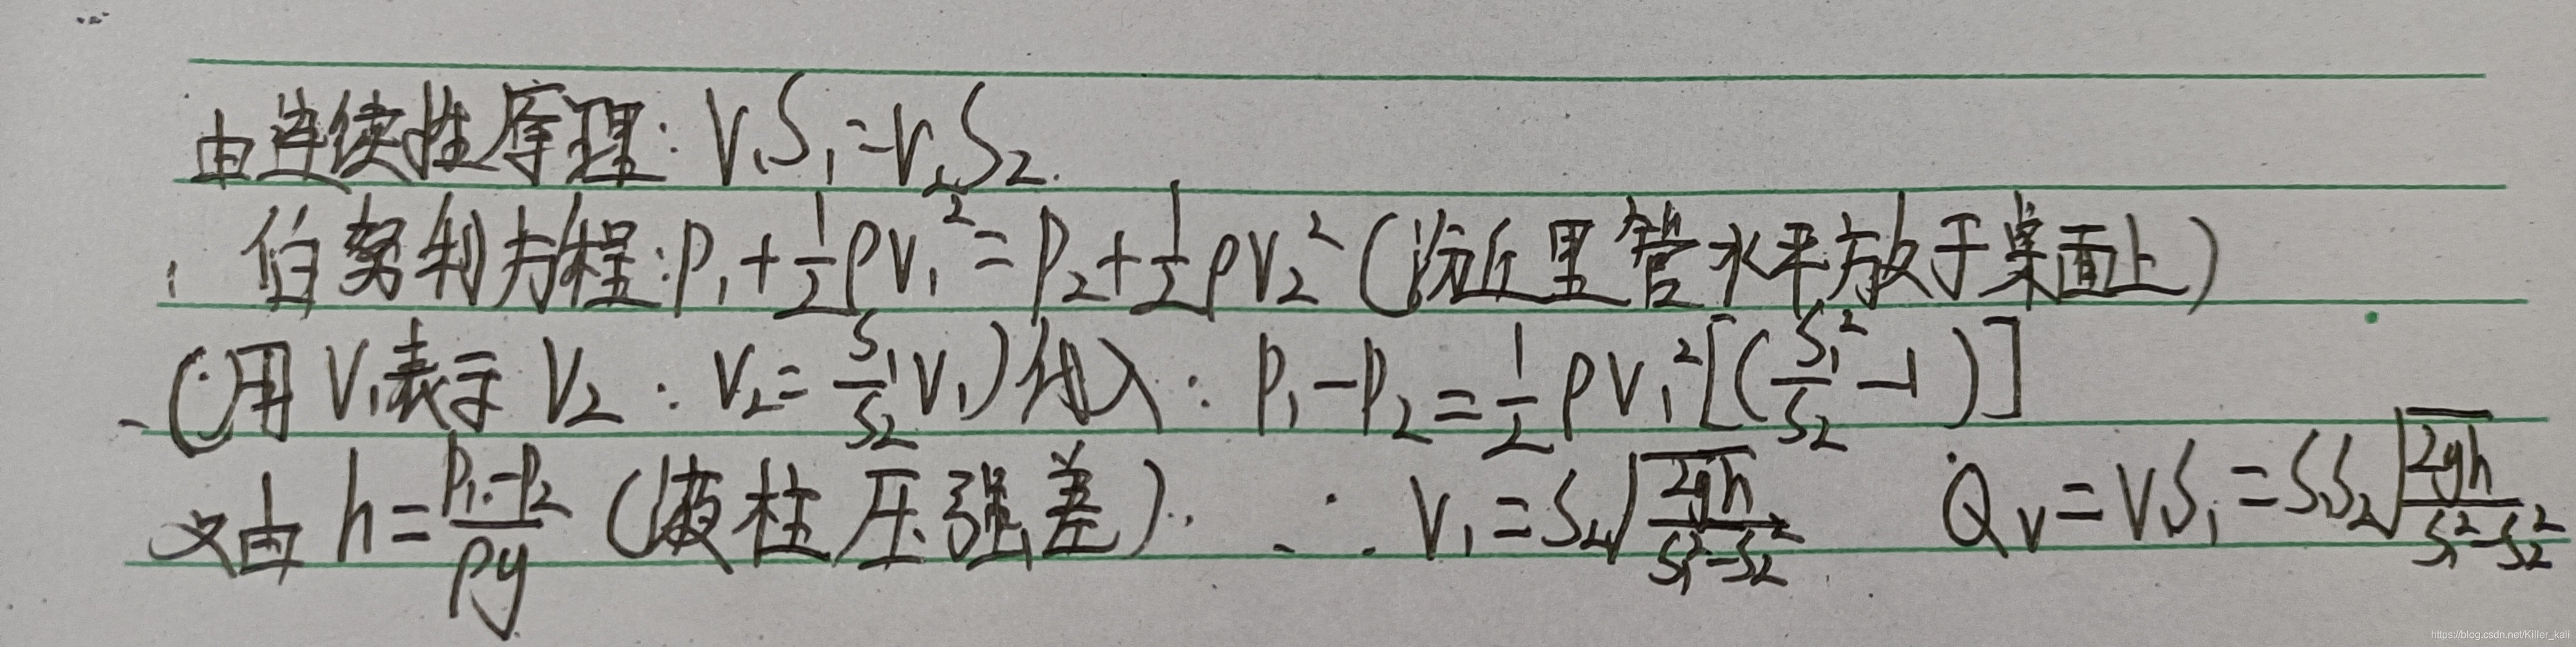 由连续性原理: V₁S₁=V₂S₂.
伯努利方程: P₁+½ρV₁²=P₂+½ρV₂² (汾丘里管水平放于桌面上)
(用V₁表示V₂: V₂=S₁/S₂V₁)代入: P₁-P₂=½ρV₁²[(S₁²/S₂-1)]
又由 h=P₁-P₂/ρg (液柱压强差). ∴ V₁=S₂√(2gh/S₁²-S₂²) Qv=VS₁=S₁S₂√(2gh/S₁²-S₂²)
https://blog.csdn.net/Killer_kali